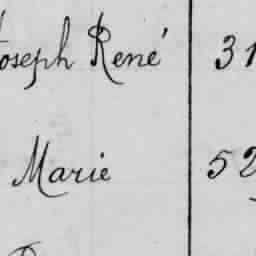 Joseph René 31
Marie 52